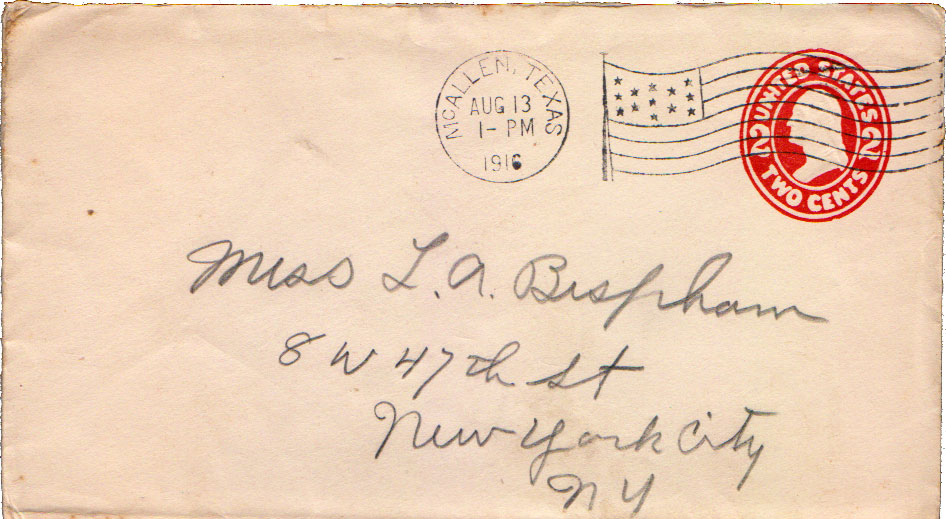 McALLEN, TEXAS
AUG 13
1- PM
1916
UNITED STATES
2 2
TWO CENTS
Miss L. A. Bispham
8 W 47th St
New York City
N Y